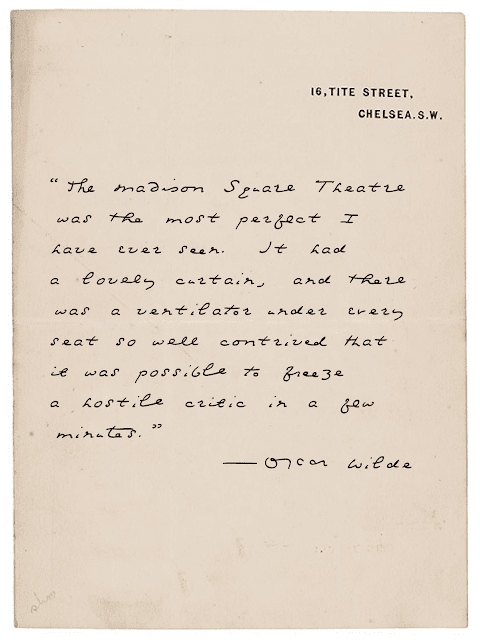 16, TITE STREET,
CHELSEA. S.W.
"The Madison Square Theatre
was the most perfect I
have ever seen. It had
a lovely curtain, and there
was a ventilator under every
seat so well contrived that
it was possible to freeze
a hostile critic in a few
minutes."
— Oscar Wilde